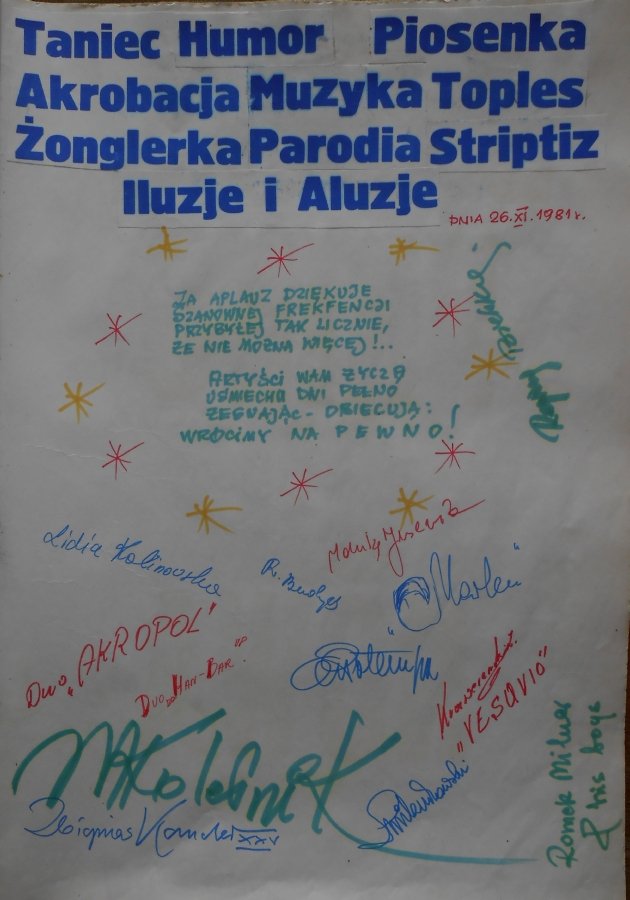 Taniec Humor Piosenka
Akrobacja Muzyka Toples
Żonglerka Parodia Striptiz
Iluzje i Aluzje
DNIA 26.XI.1981r.
ZA APLAUZ DZIĘKUJE
SZANOWNEJ FREKFENCJI
PRZYBYŁEJ TAK LICZNIE,
ŻE NIE MOŻNA WIĘCEJ!..
ARTYŚCI WAM ŻYCZĄ
UŚMIECHU DNI PEŁNO
ŻEGNAJĄC - OBIECUJĄ:
WRÓCIMY NA PEWNO!
Lidia Kalinowska
"Marlen"
Duo "AKROPOL"
Duo "HAN-BAR"
"VESUVIO"
Zbigniew
XXV
Romek Milner
& his boys